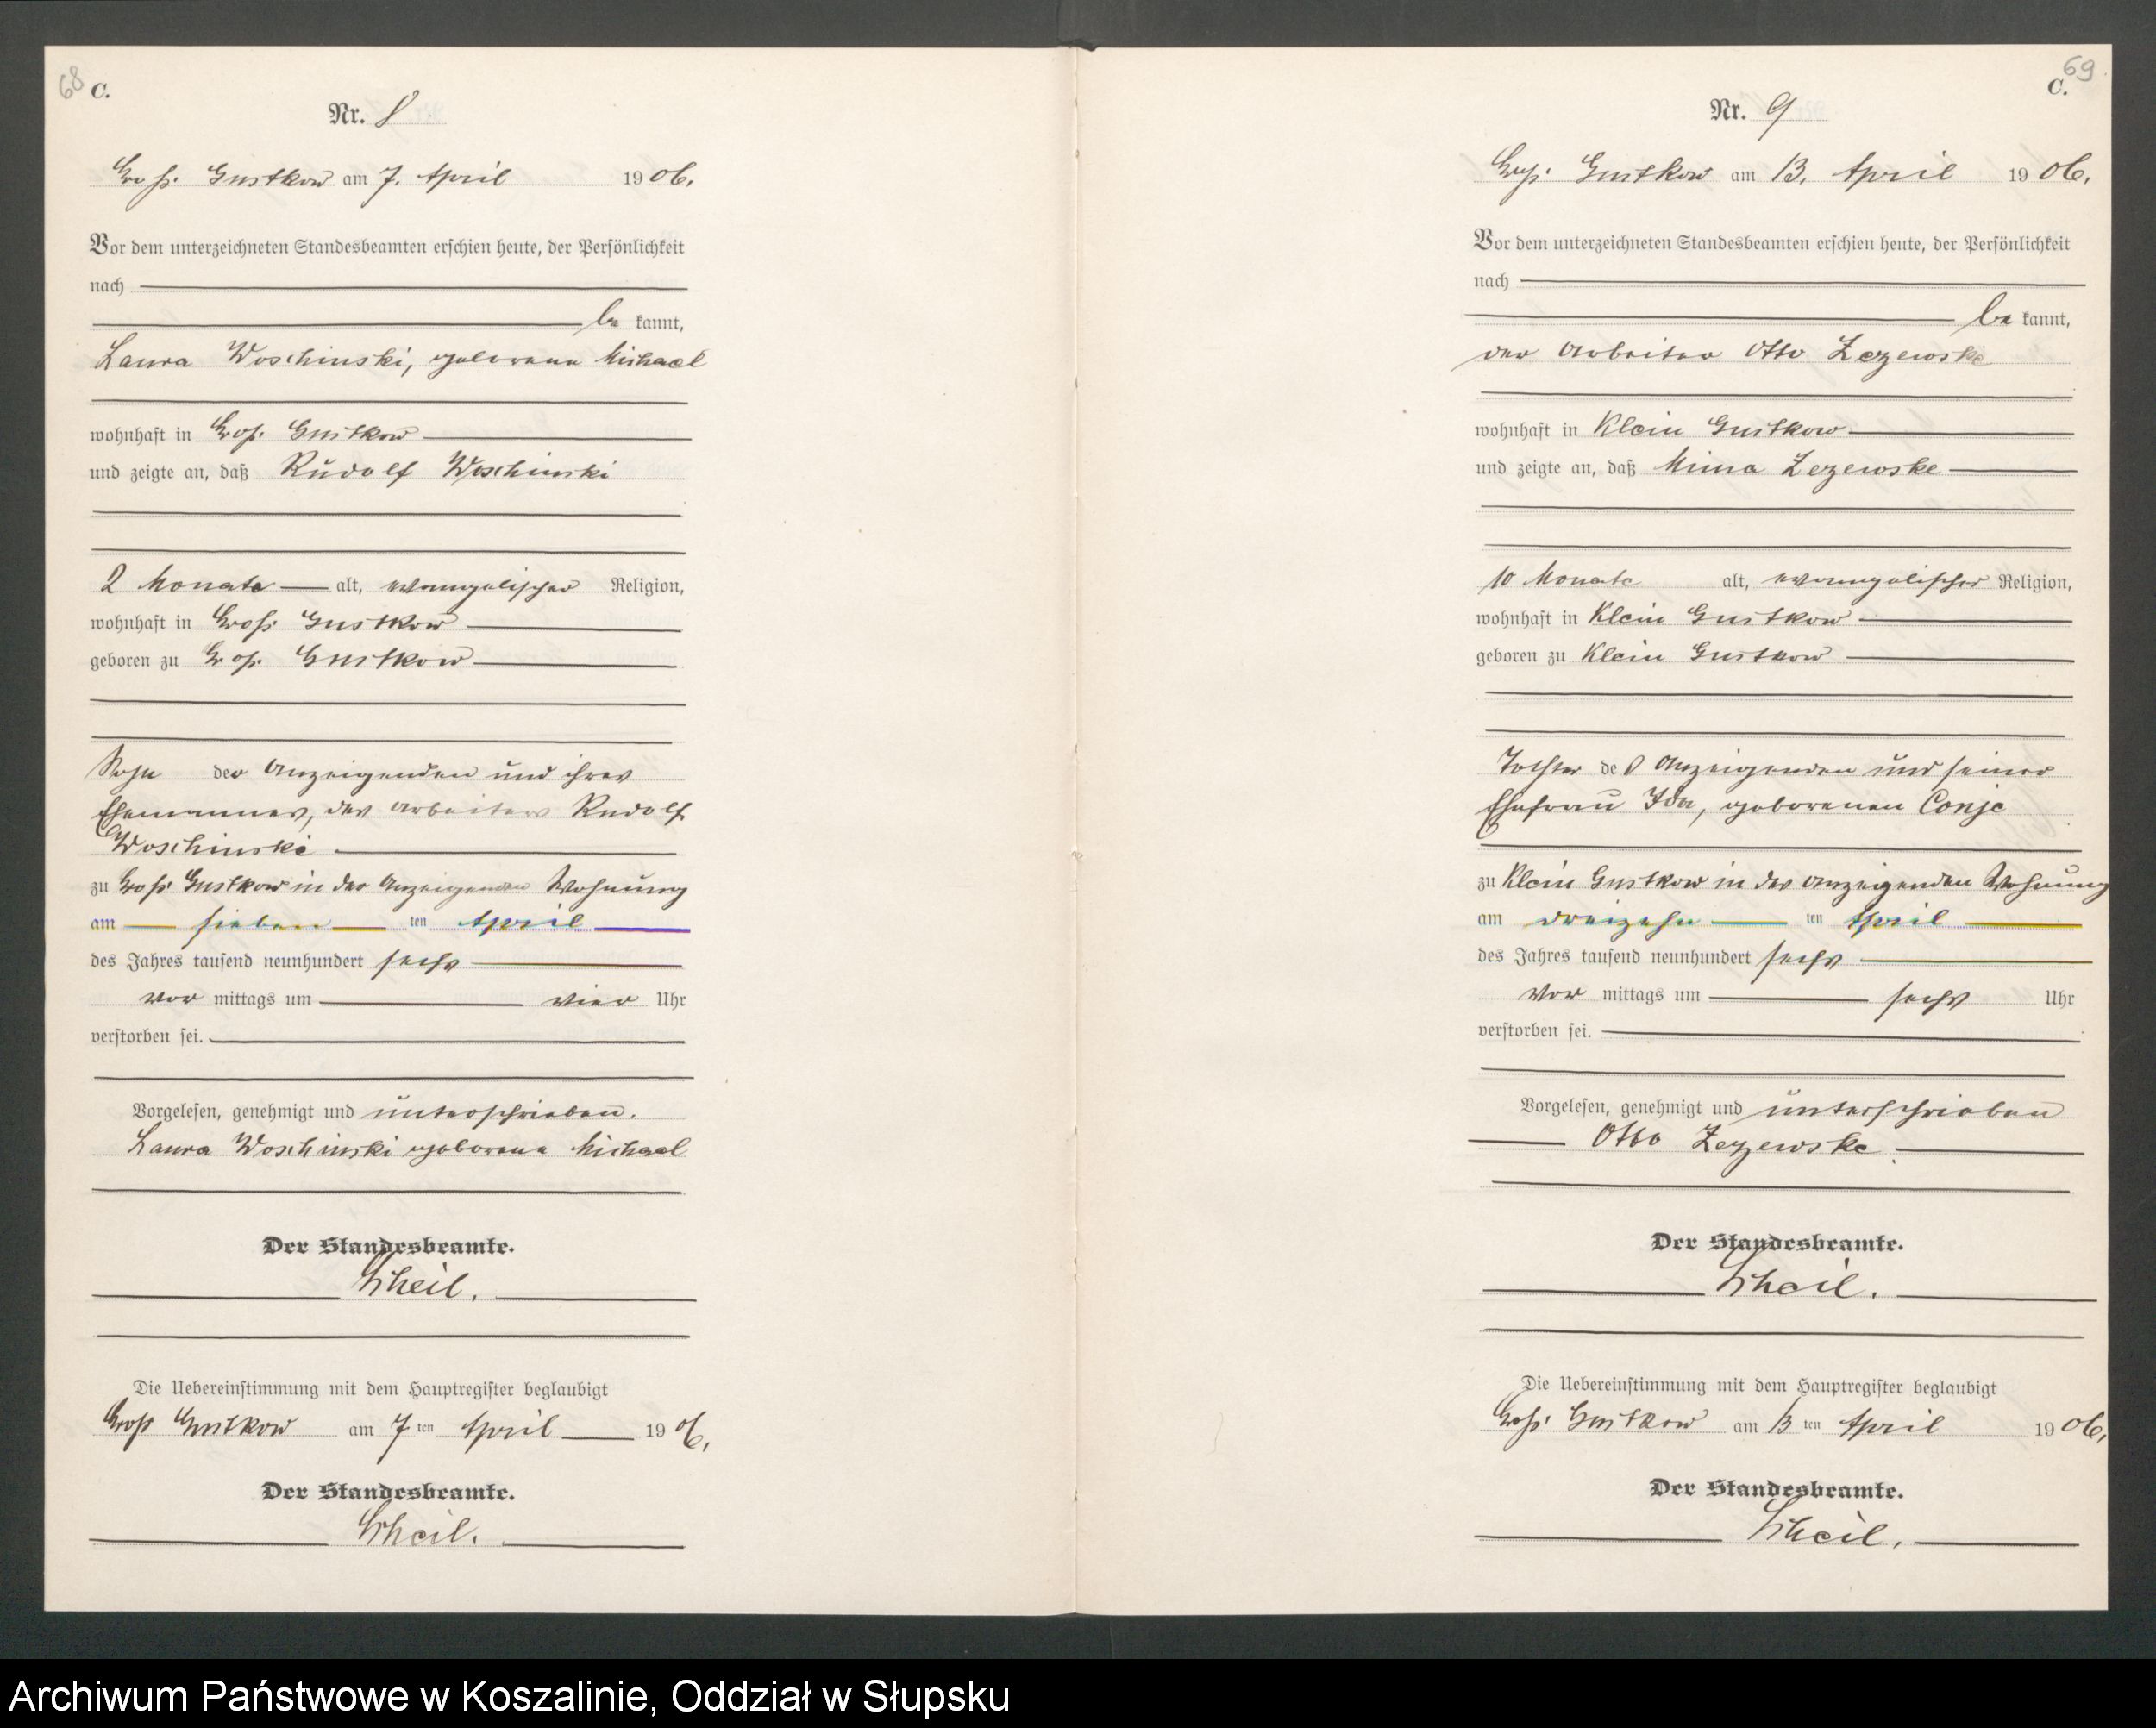 68 C.
Nr. 8
Groß Gustkow am 7. April 1906.
Vor dem unterzeichneten Standesbeamten erschien heute, der Persönlichkeit
nach
be kannt,
Laura Woschinski, geborene Michael
wohnhaft in Groß Gustkow
und zeigte an, daß Rudolf Woschinski
2 Monate alt, evangelischer Religion,
wohnhaft in Groß Gustkow
geboren zu Groß Gustkow
Sohn der Anzeigenden und ihres
Ehemannes, des Arbeiters Rudolf
Woschinski
zu Groß Gustkow in der Anzeigenden Wohnung
am sieben ten April
des Jahres tausend neunhundert sechs
vor mittags um vier Uhr
verstorben sei.
Vorgelesen, genehmigt und unterschrieben.
Laura Woschinski geborene Michael
Der Standesbeamte.
Scheil.
Die Uebereinstimmung mit dem Hauptregister beglaubigt
Groß Gustkow am 7ten April 1906.
Der Standesbeamte.
Scheil.
69
C.
Nr. 9
Groß Gustkow am 13. April 1906.
Vor dem unterzeichneten Standesbeamten erschien heute, der Persönlichkeit
nach
be kannt,
der Arbeiter Otto Zezewske
wohnhaft in Klein Gustkow
und zeigte an, daß Minna Zezewske
10 Monate alt, evangelischer Religion,
wohnhaft in Klein Gustkow
geboren zu Klein Gustkow
Tochter des Anzeigenden und seiner
Ehefrau Ida, geborenen Conje
zu Klein Gustkow in des Anzeigenden Wohnung
am dreizehn ten April
des Jahres tausend neunhundert sechs
vor mittags um sechs Uhr
verstorben sei.
Vorgelesen, genehmigt und unterschrieben
Otto Zezewske.
Der Standesbeamte.
Scheil.
Die Uebereinstimmung mit dem Hauptregister beglaubigt
Groß Gustkow am 13ten April 1906.
Der Standesbeamte.
Scheil.
Archiwum Państwowe w Koszalinie, Oddział w Słupsku